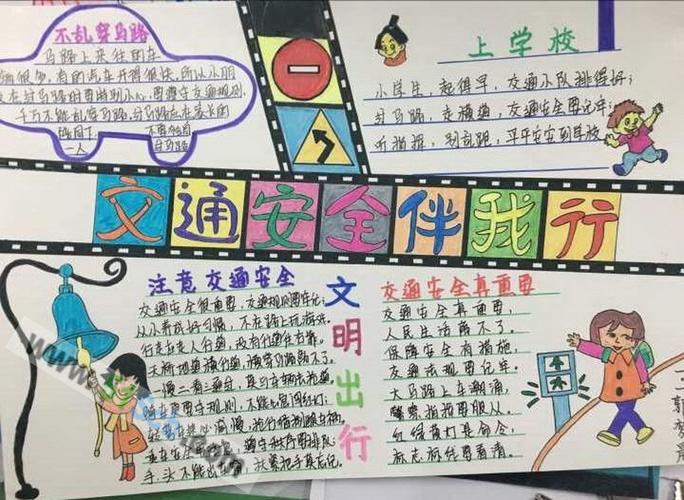 不乱穿马路
马路上来往的车
辆很多,有的汽车开得很快,所以小朋
友在过马路时要特别小心,要遵守交通规则,
千万不能乱穿马路,过马路应在家长的
陪同下
不要独自
一人
过马路
上学校
小学生,起得早,交通小队排得好;
过马路,走横道,交通安全要记牢;
听指挥,别乱跑,平平安安到学校
交通安全伴我行
注意交通安全
交通安全很重要,交通规则要牢记,
从小养成好习惯,不在路上玩游戏,
行走应走人行道,没有行道往右靠,
天桥地道横行道,横穿马路离不了,
一慢二看三通过,莫与车辆去抢道,
骑车更要守规则,不能心急闯红灯;
乘车安全要注意,遵守秩序要排队;
手、头不能出窗外,扶紧把手莫忘记。
文明出行
交通安全真重要
交通安全真重要,
人民生活离不了。
保障安全有措施,
交通法规要记牢。
大马路上车潮涌,
警察指挥要服从。
红绿黄灯是命令,
标志前你要看清。